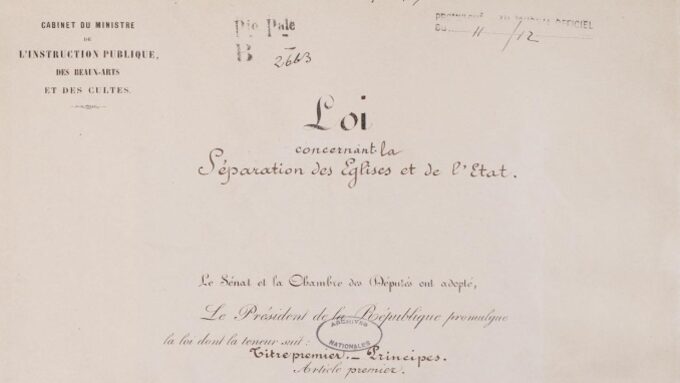 CABINET DU MINISTRE
DE
L'INSTRUCTION PUBLIQUE,
DES BEAUX-ARTS
ET DES CULTES.
Pie Pale
B 2663
AU JOURNAL OFFICIEL
DU 11/12
Loi
concernant la
Séparation des Eglises et de l'Etat.
Le Sénat et la Chambre des Députés ont adopté,
Le Président de la République promulgue
la loi dont la teneur suit :
ARCHIVES
NATIONALES
Titre premier. _ Principes.
Article premier.